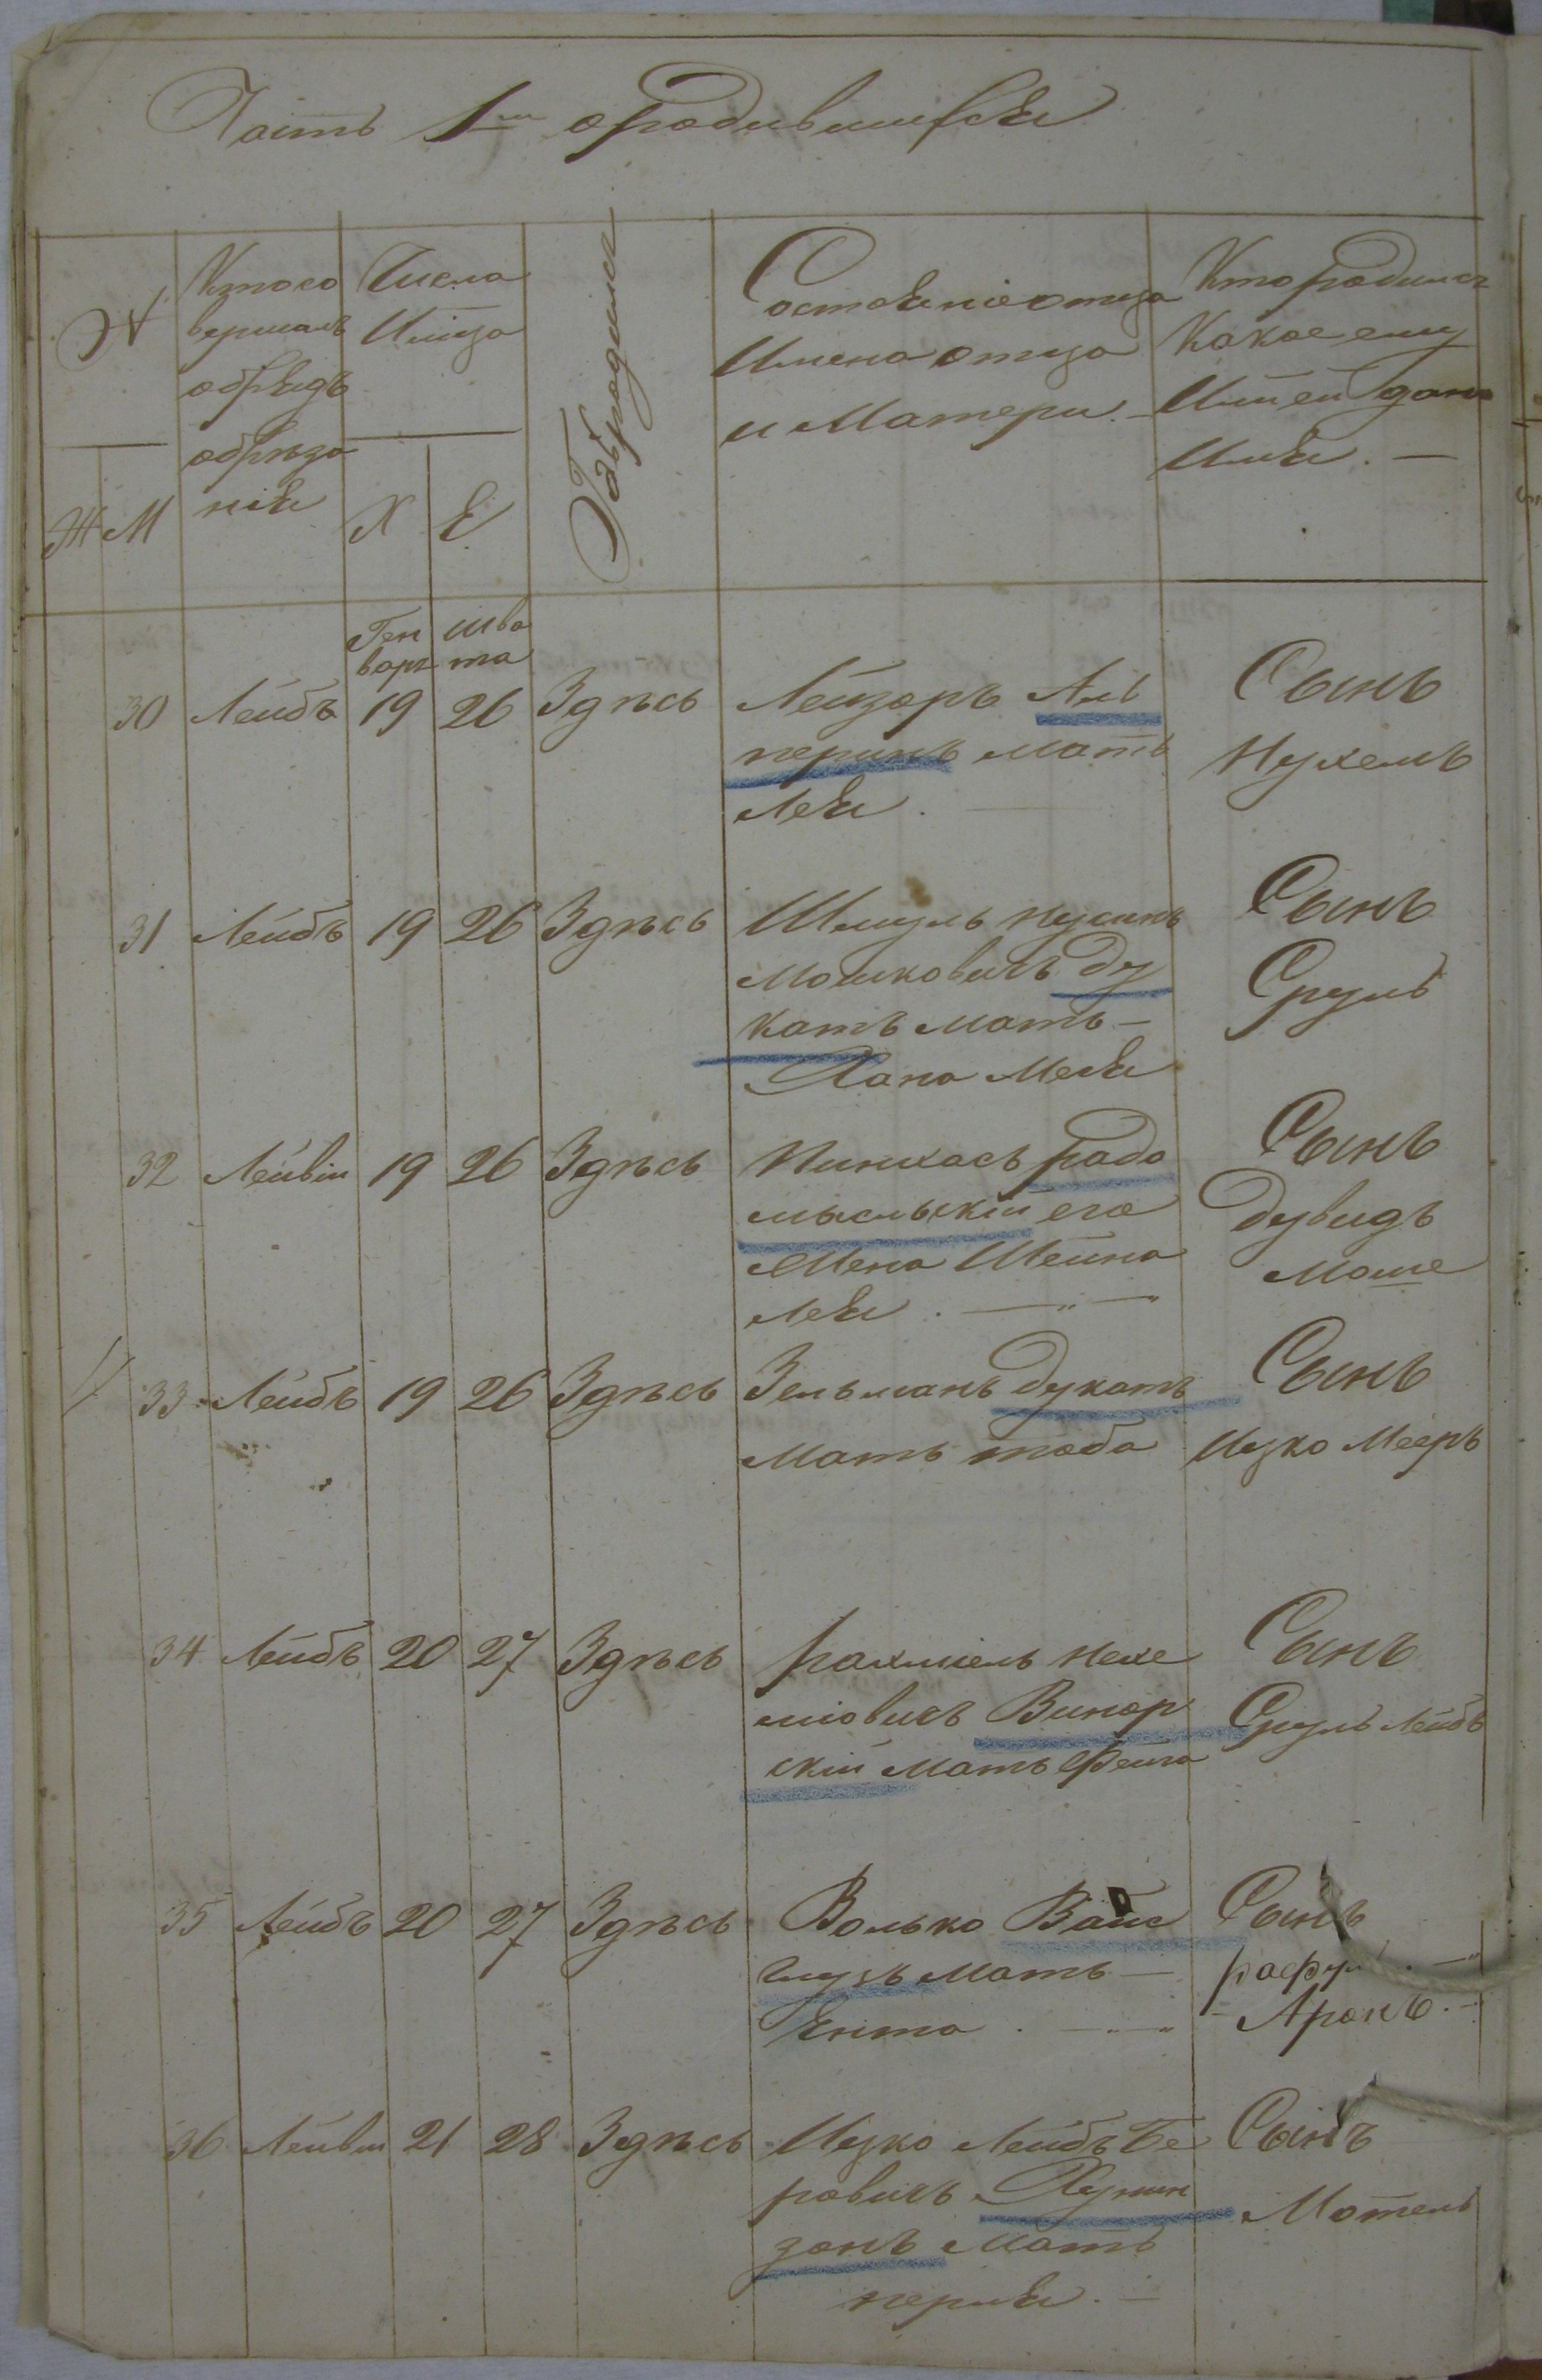 Часть 1ая о родившихся
№
Ж М
Кто со
вершалъ
обрядъ
обрѣза
нія
Числа
И мѣца
Х Е
Гдѣ родился
Состояніе отца
Имена отца
и Матери. —
Кто родился
Какое ему
Или ей дано
Имя. —
Ген
варя
Шва
та
30 Лейбъ 19 26 Здѣсь Лейзоръ Аль
перинъ мать
Лея. —
Сынъ
Нухемъ
31 Лейбъ 19 26 Здѣсь Шмуль Нусинъ
Мошковичъ Ду
катъ мать —
Хана
Сынъ
Сруль
32 Лейвіи 19 26 Здѣсь Пинхасъ Радо
мысльскій его
Жена Шейна
Лея. —„—
Сынъ
Дувидъ
Моше
33 Лейбъ 19 26 Здѣсь Зельманъ Дукатъ
Мать Тоба
Сынъ
Ицко Мееръ
34 Лейбъ 20 27 Здѣсь Рахміель Нехе
міовичъ Винор
скій Мать Фейга
Сынъ
Сруль Лейбъ
35 Лейбъ 20 27 Здѣсь Волько Вайс
глузъ Мать —
Ента. —
Сынъ
Аронъ. —
36 Лейвіи 21 28 Здѣсь Ицко Лейбъ Бе
ровичъ Хунин
зонъ Мать
Перля. —
Сынъ
Мотель